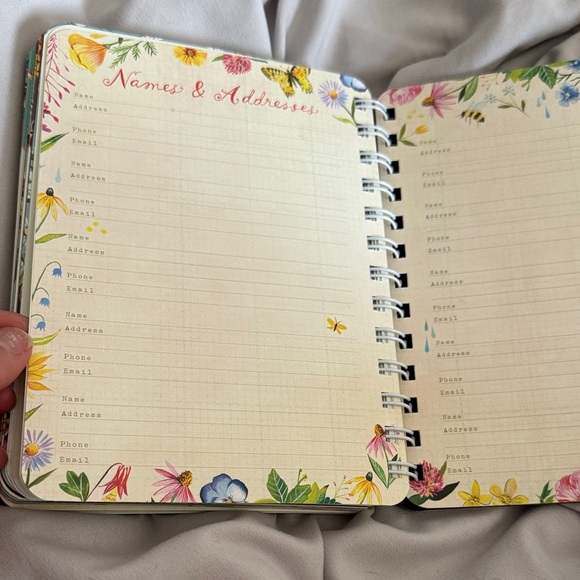 Names & Addresses
Name
Address
Phone
Email
Name
Address
Phone
Email
Name
Address
Phone
Email
Name
Address
Phone
Email
Name
Address
Phone
Email
Name
Address
Phone
Email
Name
Address
Phone
Email
Name
Address
Phone
Email
Name
Address
Phone
Email
Name
Address
Phone
Email